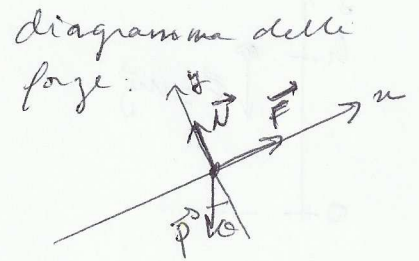 diagramma delle
forze:
y
N
F
x
P
θ